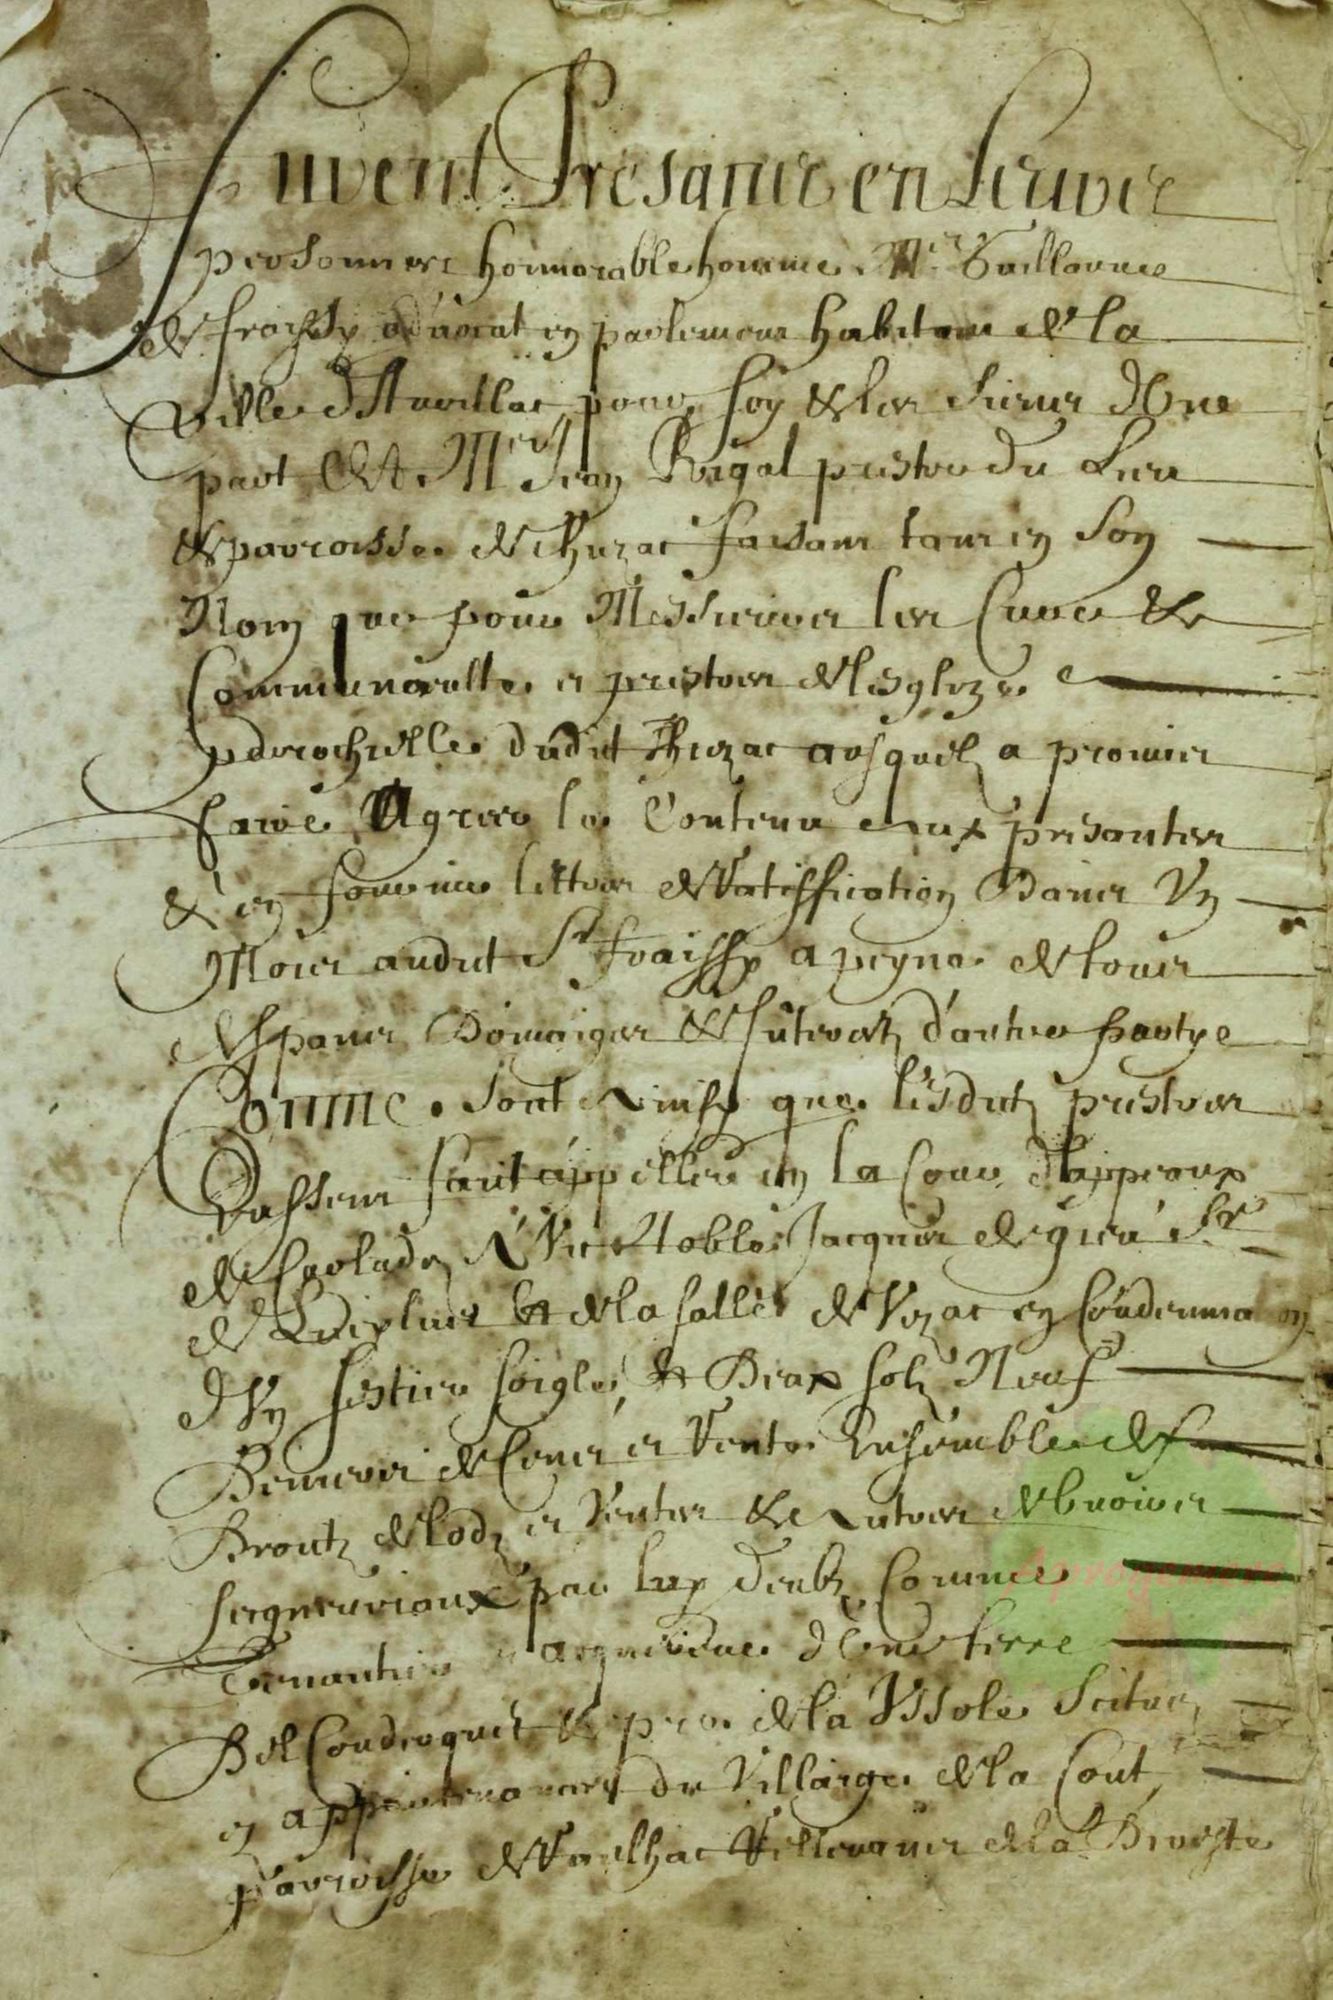 Furent Presantz en Leurs
personnes honnorable homme Mr Guillaume
de Fraissy advocat en parlement habitant de la
Ville d'Aurillac pour soy & les siens d'Une
part Et Mre Jean Rigal prestre du Lieu
& parroisse de Thiezac faisant tant en son
Nom que pour Messieurs les Curé &
Communaulté et prestres de l'esglize
parrochielle dudit Thiezac ausquelz a promis
faire Agreer le Contenu aux presantes
& en fournir lettres de Ratiffication Dans Un
Mois audit Sr Fraissy a peyne de tous
despans Domaiges & Interestz d'autre partye
Comme. soit Ainsy que lesditz prestres
Eussent fait appeller en la Cour d'appeaux
de Carlades A Vic Noble Jacques de Sr
de & de la Salle de Vezac en Condemna on
d'Un sestier soigle & Deux solz Neuf
Deniers de Cens et Rente Ensemble des
Droitz de lodz et Ventes & Autres debvoirs
seigneuriaux par luy deubz Comme
Tenantier d'Une terre
Del Coudroquet & pres de la Ussole Scitues
en appartenances du Villaige de la Cout
Parroisse de Roulhac Rellevans de la Direste